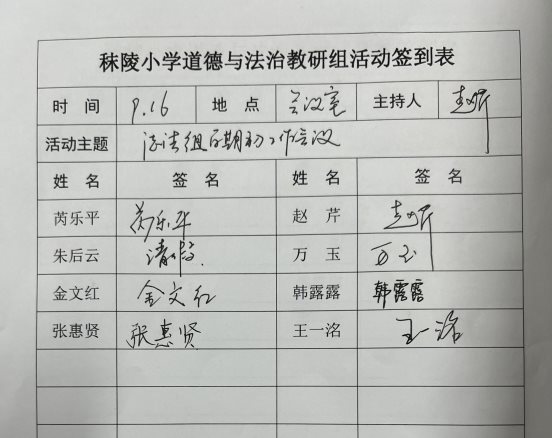 秣陵小学道德与法治教研组活动签到表
时 间 9.16 地 点 会议室 主持人 赵芹
活动主题 道法组学期初工作会议
姓 名 签 名 姓 名 签 名
芮乐平 芮乐平 赵 芹 赵芹
朱后云 请假 万 玉 万玉
金文红 金文红 韩露露 韩露露
张惠贤 张惠贤 王一洺 王一洺